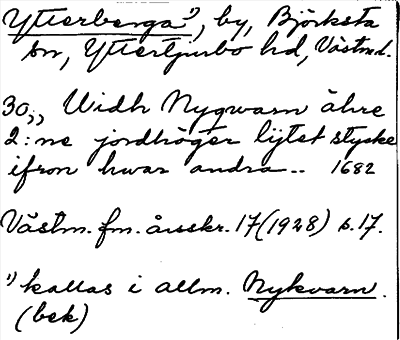 Ytterberga¹⁾, by, Björksta
sn, Yttertjurbo hd, Västmd.
30,, Widh Nyqwarn ähre
2:ne jordhöger lijtet stycke
ifron hwar andra.. 1682
Västm. fm. årsskr. 17 (1928) s. 17.
¹⁾ kallas i allm. Nykvarn.
(bek)